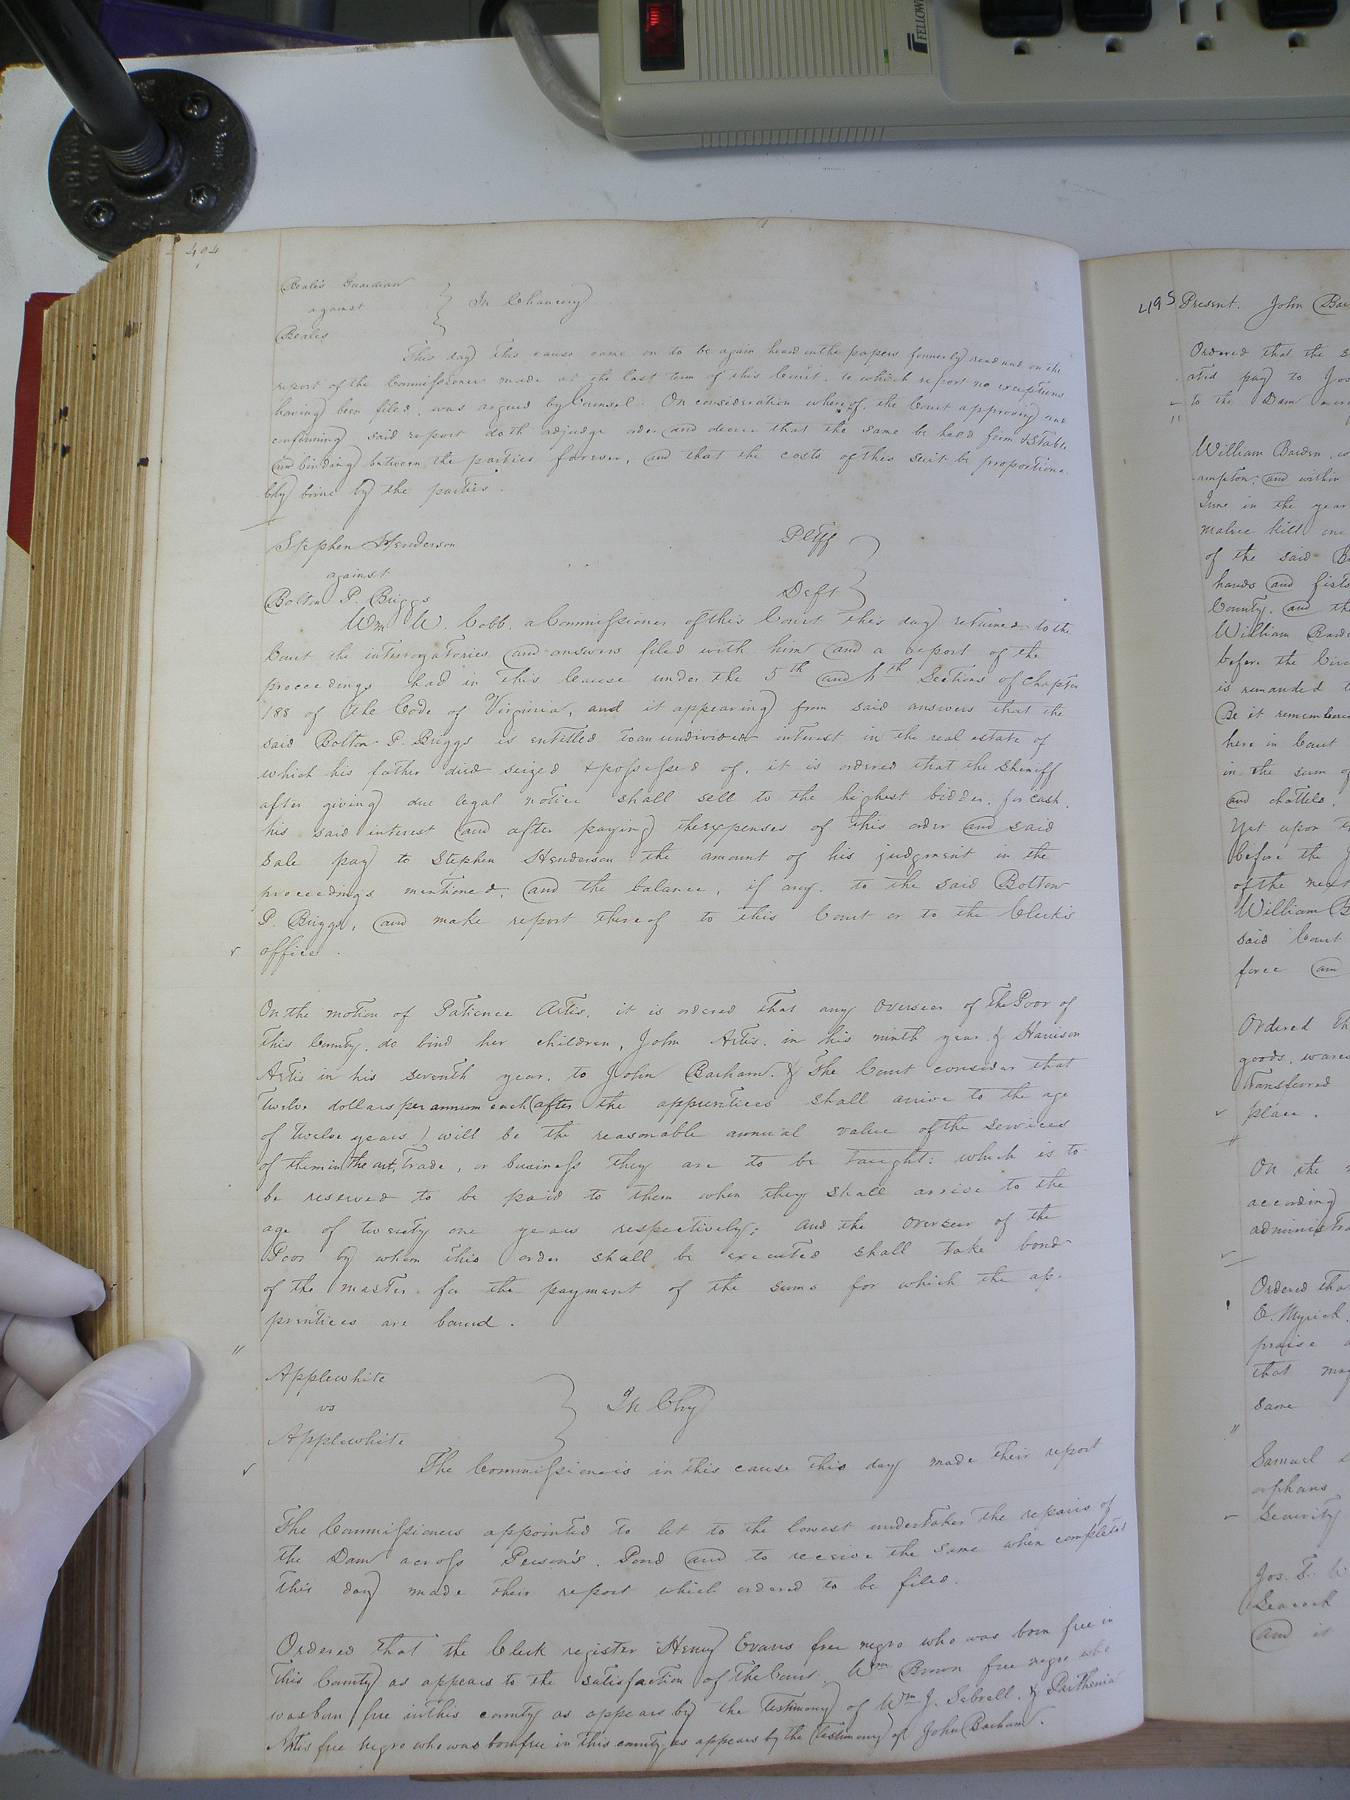 494
Beale's Guardian
against
Beales
In Chancery
This day this cause came on to be again heard on the papers formerly read and on the
report of the Commissioner made at the last term of this Court, to which report no exceptions
having been filed, was argued by Counsel. On consideration whereof, the Court approving and
confirming said report doth adjudge order and decree that the same be held firm & stable
and binding between the parties forever, and that the costs of this suit be proportiona
bly borne by the parties.
Stephen Henderson Pltff
against
Bolton P. Briggs Deft
Wm W. Cobb, a Commissioner of this Court this day returned to the
Court the interrogatories and answers filed with him and a report of the
proceedings had in this Cause under the 5th and 6th Sections of Chapter
188 of the Code of Virginia, and it appearing from said answers that the
said Bolton P. Briggs is entitled to an undivided interest in the real estate of
which his father died seized & possessed of, it is ordered that the Sheriff
after giving due legal notice shall sell to the highest bidder, for cash,
his said interest and after paying the expenses of this order and said
Sale pay to Stephen Henderson the amount of his judgment in the
proceedings mentioned, and the balance, if any, to the said Bolton
P. Briggs, and make report thereof to this Court or to the Clerk's
office.
On the motion of Patience Artis, it is ordered that any Overseer of the Poor of
this County, do bind her children, John Artis, in his ninth year & Harrison
Artis in his seventh year, to John Barham. & The Court consider that
twelve dollars per annum each (after the apprentices shall arrive to the age
of twelve years) will be the reasonable annual value of the services
of them in the art, trade, or business they are to be taught: which is to
be reserved to be paid to them when they shall arrive to the
age of twenty one years respectively; and the Overseer of the
Poor by whom this order shall be executed shall take bond
of the master for the payment of the sums for which the ap-
prentices are bound.
Applewhite
vs
Applewhite
In Chy
The Commissioners in this cause this day made their report
The Commissioners appointed to let to the lowest undertaker the repairs of
the Dam across Person's Pond and to receive the same when completed
this day made their report which ordered to be filed.
Ordered that the Clerk register Henry Evans free negro who was born free in
this County as appears to the satisfaction of the Court Wm Brown free negro who
was born free in this county as appears by the testimony of Wm J. Sebrell, & Parthenia
Artis free negro who was born free in this county, as appears by the testimony of John Barham.
495 Present. John
Ordered that the
pay to
to the Dam
William Barden
ampton, and within
June in the year
malice kill
of the said
hands and fists
County, and the
William
before the
is remanded
Be it remembered
here in Court
in the sum of
and chattels,
Yet upon
before the
of the next
William
said Court
force
Ordered
goods, wares
transferred
place.
On the
according
administra
Ordered that
E. Myrick,
praise
that may
same
Samuel
orphans
Security
Jos. T.
and it
FELLOWE